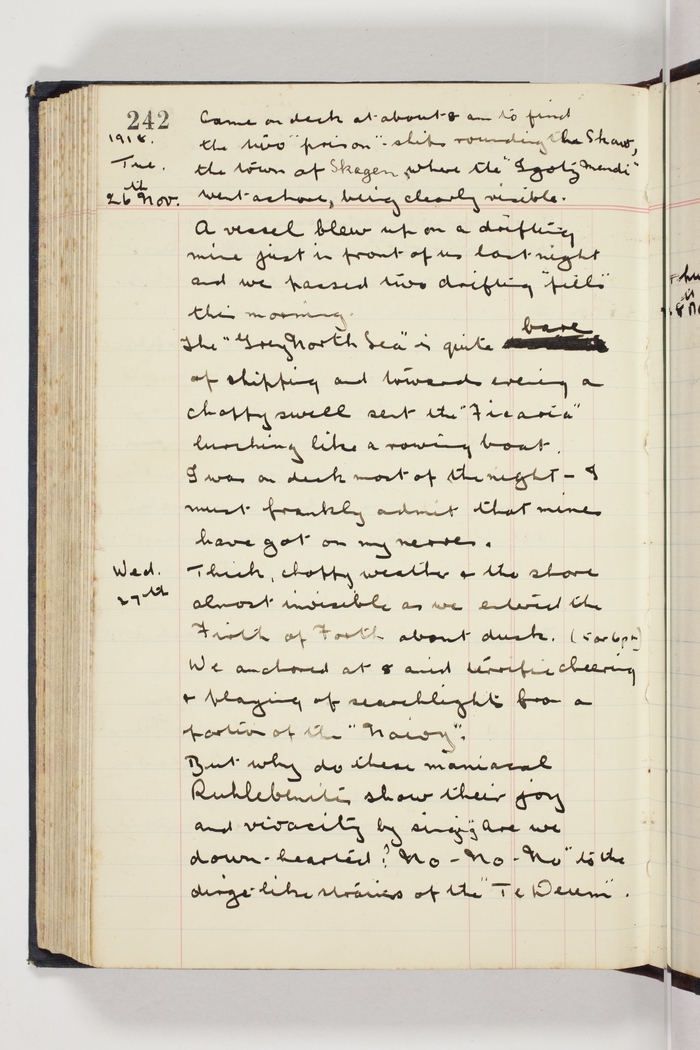 242
1918.
Tue.
26th Nov.
Came on deck at about 8 am to find
the two "prison"-ships rounding the Skaw,
the town of Skagen, where the "Igotz Mendi"
went ashore, being clearly visible.
A vessel blew up on a drifting
mine just in front of us last night
and we passed two drifting "pills"
this morning.
The "Grey North Sea" is quite bare
of shipping and towards evening a
choppy swell sent the "Ficaria"
lurching like a rowing boat.
I was on deck most of the night - I
must frankly admit that mines
have got on my nerves.
Wed.
27th
Thick, choppy weather & the shore
almost invisible as we entered the
Firth of Forth about dusk. (5 or 6 pm)
We anchored at 8 amid terrific cheering
& playing of searchlights from a
portion of the "Naivy".
But why do these maniacal
Ruhlebenites show their joy
and vivacity by singing "Are we
down-hearted? No - No - No" to the
dirge-like strains of the "Te Deum".